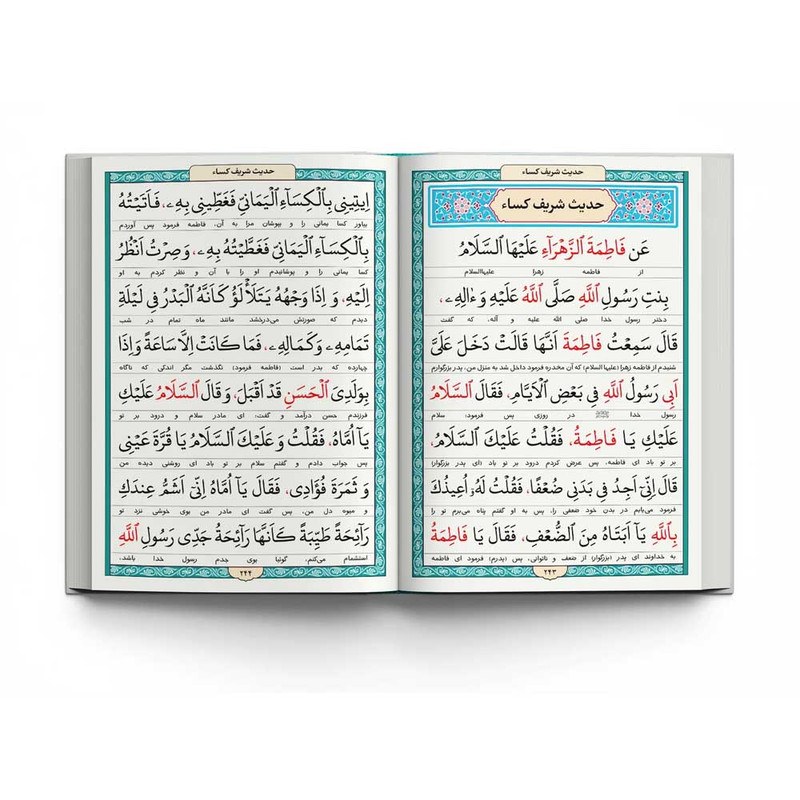 حدیث شریف کساء
حدیث شریف کساء
عَن فَاطِمَةَ ٱلزَّهْرَآءِ عَلَیْهَا ٱلسَّلَامُ
از فاطمه زهرا علیهاالسلام
بِنتِ رَسُولِ ٱللَّهِ صَلَّی ٱللَّهُ عَلَیْهِ وَءَالِهِۦ،
دختر رسول خدا صلی الله علیه و آله، که گفت
قَالَ سَمِعْتُ فَاطِمَةَ اَنَّهَا قَالَتْ دَخَلَ عَلَیَّ
شنیدم از فاطمه زهرا (علیها السلام) که آن مخدره فرمود داخل شد به منزل من، پدر بزرگوارم
اَبِی رَسُولُ ٱللَّهِ فِی بَعْضِ ٱلْاَیَّامِ، فَقَالَ ٱلسَّلَامُ
رسول خدا ﷺ در روزی پس فرمود، سلام
عَلَیْكِ یَا فَاطِمَةُ، فَقُلْتُ عَلَیْكَ ٱلسَّلَامُ،
بر تو باد ای فاطمه، پس عرض کردم درود بر تو باد (ای پدر بزرگوار)
قَالَ اِنِّیٓ اَجِدُ فِی بَدَنِی ضُعْفًا، فَقُلْتُ لَهُۥٓ اُعِیذُكَ
فرمود می‌یابم در بدن خود ضعفی را، پس به او گفتم پناه می‌برم تو را
بِٱللَّهِ یَآ اَبَتَاهُ مِنَ ٱلضُّعْفِ، فَقَالَ یَا فَاطِمَةُ
به خداوند ای پدر (بزرگوار) از ضعف و ناتوانی، پس (پدرم) فرمود ای فاطمه
۲۴۳
حدیث شریف کساء
اِیتِینِی بِٱلْكِسَآءِ ٱلْیَمَانِیِّ فَغَطِّینِی بِهِۦ، فَاَتَیْتُهُ
بیاور کسا یمانی را و بپوشان مرا به آن، فاطمه فرمود پس آوردم
بِٱلْكِسَآءِ ٱلْیَمَانِیِّ فَغَطَّیْتُهُ بِهِۦ، وَصِرْتُ اَنظُرُ
کسا یمانی را و پوشانیدم او را با آن و نظر کردم به او
اِلَیْهِ، وَ اِذَا وَجْهُهُ یَتَلَأْلَؤُ كَاَنَّهُ ٱلْبَدْرُ فِی لَیْلَةِ
دیدم که صورتش می‌درخشد مانند ماه تمام در شب
تَمَامِهِۦ وَكَمَالِهِۦ، فَمَا كَانَتْ اِلَّا سَاعَةً وَاِذَا
چهارده که بدر است (فاطمه فرمود) نگذشت مگر اندکی که ناگاه
بِوَلَدِیَ ٱلْحَسَنِ قَدْ اَقْبَلَ، وَ قَالَ ٱلسَّلَامُ عَلَیْكِ
فرزندم حسن درآمد و گفت: ای مادر سلام و درود بر تو
یَآ اُمَّاهُ، فَقُلْتُ وَ عَلَیْكَ ٱلسَّلَامُ یَا قُرَّةَ عَیْنِی
پس جواب دادم و گفتم سلام بر تو باد ای روشنی دیده من
وَ ثَمَرَةَ فُؤَادِی، فَقَالَ یَآ اُمَّاهُ اِنِّیٓ اَشَمُّ عِندَكِ
و میوه دل من، پس گفت ای مادر من بوی خوشی نزد تو
رَآئِحَةً طَیِّبَةً كَاَنَّهَا رَآئِحَةُ جَدِّی رَسُولِ ٱللَّهِ
استشمام می‌کنم، گوئیا بوی جدم رسول خدا باشد،
۲۴۴